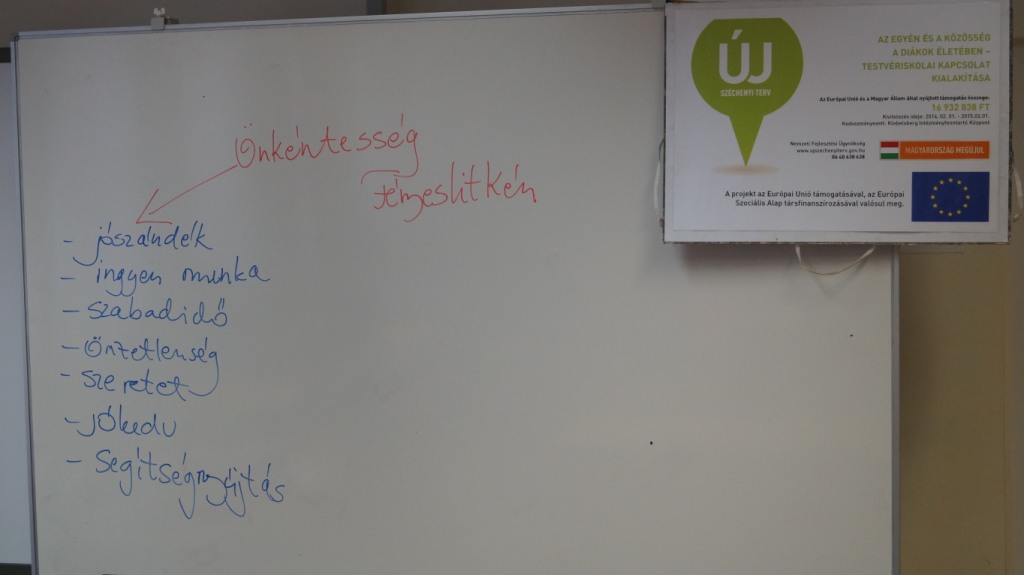 Önkéntesség
- jószándék
- ingyen munka
- szabadidő
- önzetlenség
- szeretet
- jókedv
- segítségnyújtás
ÚJ
SZÉCHENYI TERV
AZ EGYÉN ÉS A KÖZÖSSÉG
A DIÁKOK ÉLETÉBEN –
TESTVÉRISKOLAI KAPCSOLAT
KIALAKÍTÁSA
Az Európai Unió és a Magyar Állam által nyújtott támogatás összege:
16 932 838 FT
Kivitelezés ideje: 2014. 02. 01. - 2015.02.01.
Kedvezményezett: Klebelsberg Intézményfenntartó Központ
Nemzeti Fejlesztési Ügynökség
www.ujszechenyiterv.gov.hu
06 40 638 638
MAGYARORSZÁG MEGÚJUL
A projekt az Európai Unió támogatásával, az Európai
Szociális Alap társfinanszírozásával valósul meg.